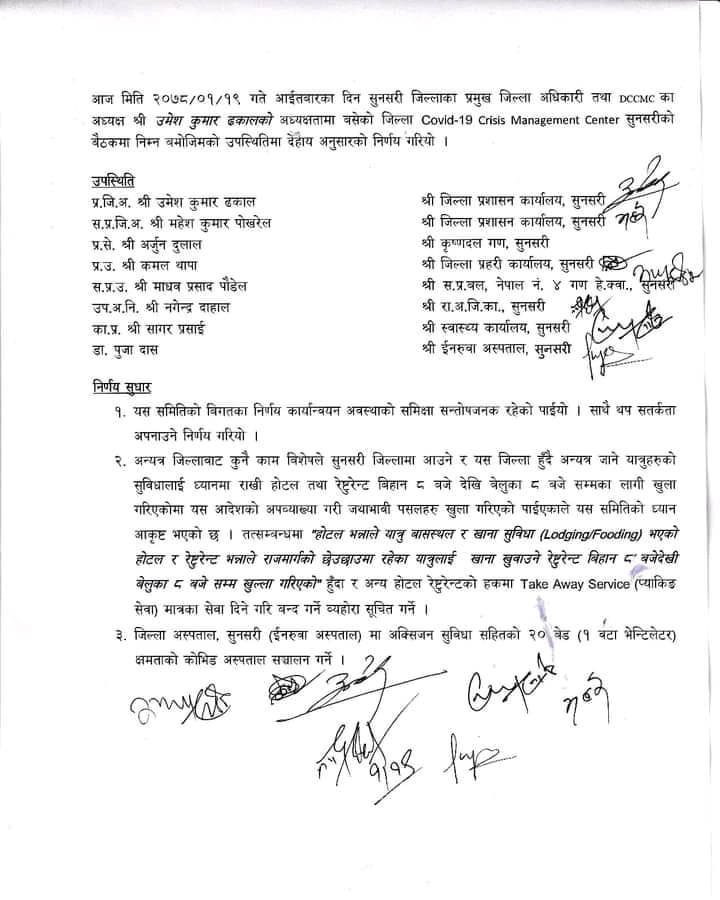 आज मिति २०७८/०१/१९ गते आईतवारका दिन सुनसरी जिल्लाका प्रमुख जिल्ला अधिकारी तथा DCCMC का
अध्यक्ष श्री उमेश कुमार ढकालको अध्यक्षतामा बसेको जिल्ला Covid-19 Crisis Management Center सुनसरीको
बैठकमा निम्न बमोजिमको उपस्थितिमा देहाय अनुसारको निर्णय गरियो ।
उपस्थिति
प्र.जि.अ. श्री उमेश कुमार ढकाल श्री जिल्ला प्रशासन कार्यालय, सुनसरी
स.प्र.जि.अ. श्री महेश कुमार पोखरेल श्री जिल्ला प्रशासन कार्यालय, सुनसरी
प्र.से. श्री अर्जुन दुलाल श्री कृष्णदल गण, सुनसरी
प्र.उ. श्री कमल थापा श्री जिल्ला प्रहरी कार्यालय, सुनसरी
स.प्र.उ. श्री माधव प्रसाद पौडेल श्री स.प्र.वल, नेपाल नं. ४ गण हे.क्वा., सुनसरी
उप.अ.नि. श्री नगेन्द्र दाहाल श्री रा.अ.जि.का., सुनसरी
का.प्र. श्री सागर प्रसाई श्री स्वास्थ्य कार्यालय, सुनसरी
डा. पुजा दास श्री ईनरुवा अस्पताल, सुनसरी
निर्णय सुधार
१. यस समितिको बिगतका निर्णय कार्यान्वयन अवस्थाको समिक्षा सन्तोषजनक रहेको पाईयो । साथै थप सतर्कता
अपनाउने निर्णय गरियो ।
२. अन्यत्र जिल्लावाट कुनै काम विशेषले सुनसरी जिल्लामा आउने र यस जिल्ला हुँदै अन्यत्र जाने यात्रुहरुको
सुविधालाई ध्यानमा राखी होटल तथा रेष्टुरेन्ट बिहान ८ बजे देखि बेलुका ८ बजे सम्मका लागी खुला
गरिएकोमा यस आदेशको अपव्याख्या गरी जथाभावी पसलहरु खुला गरिएको पाईएकाले यस समितिको ध्यान
आकृष्ट भएको छ । तत्सम्बन्धमा "होटल भन्नाले यात्रु बासस्थल र खाना सुविधा (Lodging/Fooding) भएको
होटल र रेष्टुरेन्ट भन्नाले राजमार्गको छेउछाउमा रहेका यात्रुलाई खाना खुवाउने रेष्टुरेन्ट बिहान ८ बजेदेखी
बेलुका ८ बजे सम्म खुल्ला गरिएको" हुँदा र अन्य होटल रेष्टुरेन्टको हकमा Take Away Service (प्याकिङ
सेवा) मात्रका सेवा दिने गरि बन्द गर्ने व्यहोरा सूचित गर्ने ।
३. जिल्ला अस्पताल, सुनसरी (ईनरुवा अस्पताल) मा अक्सिजन सुविधा सहितको २० बेड (१ वटा भेन्टिलेटर)
क्षमताको कोभिड अस्पताल सञ्चालन गर्ने ।